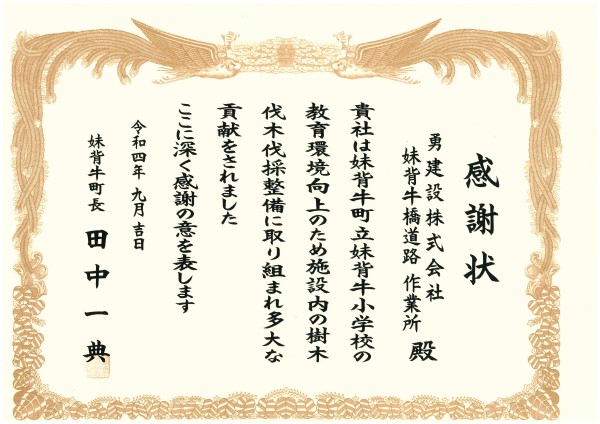 感謝状
勇建設株式会社
妹背牛橋道路作業所 殿
貴社は妹背牛町立妹背牛小学校の
教育環境向上のため施設内の樹木
伐木伐採整備に取り組まれ多大な
貢献をされました
ここに深く感謝の意を表します
令和四年 九月 吉日
妹背牛町長 田中一典